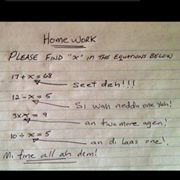 HOME WORK
PLEASE FIND "X" IN THE EQUATIONS BELOW
17 + x = 68
seet deh!!!
12 - x = 5
Si wan nedda one yah!
3x = 9
an two more agen!
10 ÷ x = 5
an di laas one!
Mi fine all ah dem!